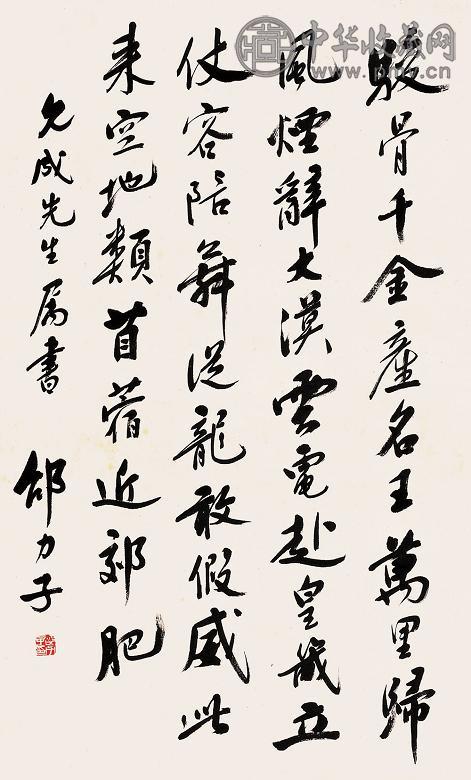 中华收藏网
www.pmlv.cn
骏骨千金產名王萬里歸
風煙辭大漠雲電赴皇畿立
仗容陪舞從龍敢假威此
来空地類苜蓿近郊肥
允成先生属書
邵力子